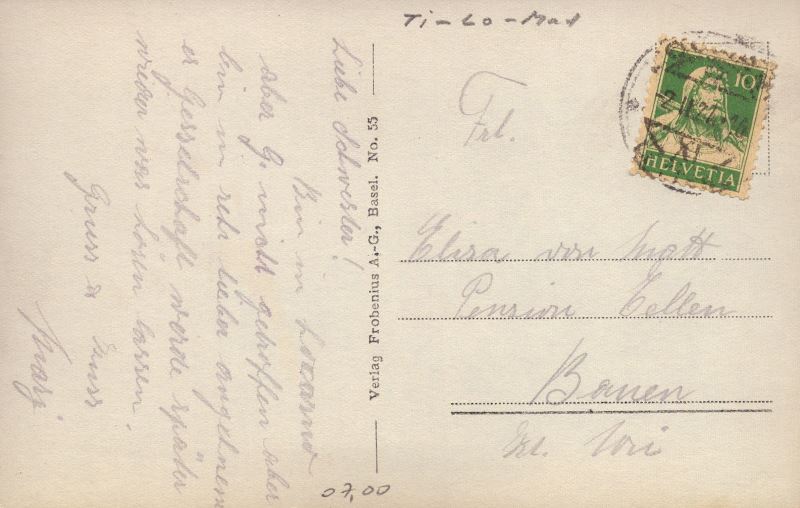 Ti-Lo-Mad
10
HELVETIA
Frl.
Eliza von Matt
Pension Tellen
Bauen
Kt. Uri
Verlag Frobenius A.-G., Basel. No. 55
Liebe Schwester!
Bin in Locarno
aber G. nicht getroffen aber
bin in sehr lieber angenem
er Gesselschaft werde später
wieder was hören lassen.
Gruss & Kuss
07,00